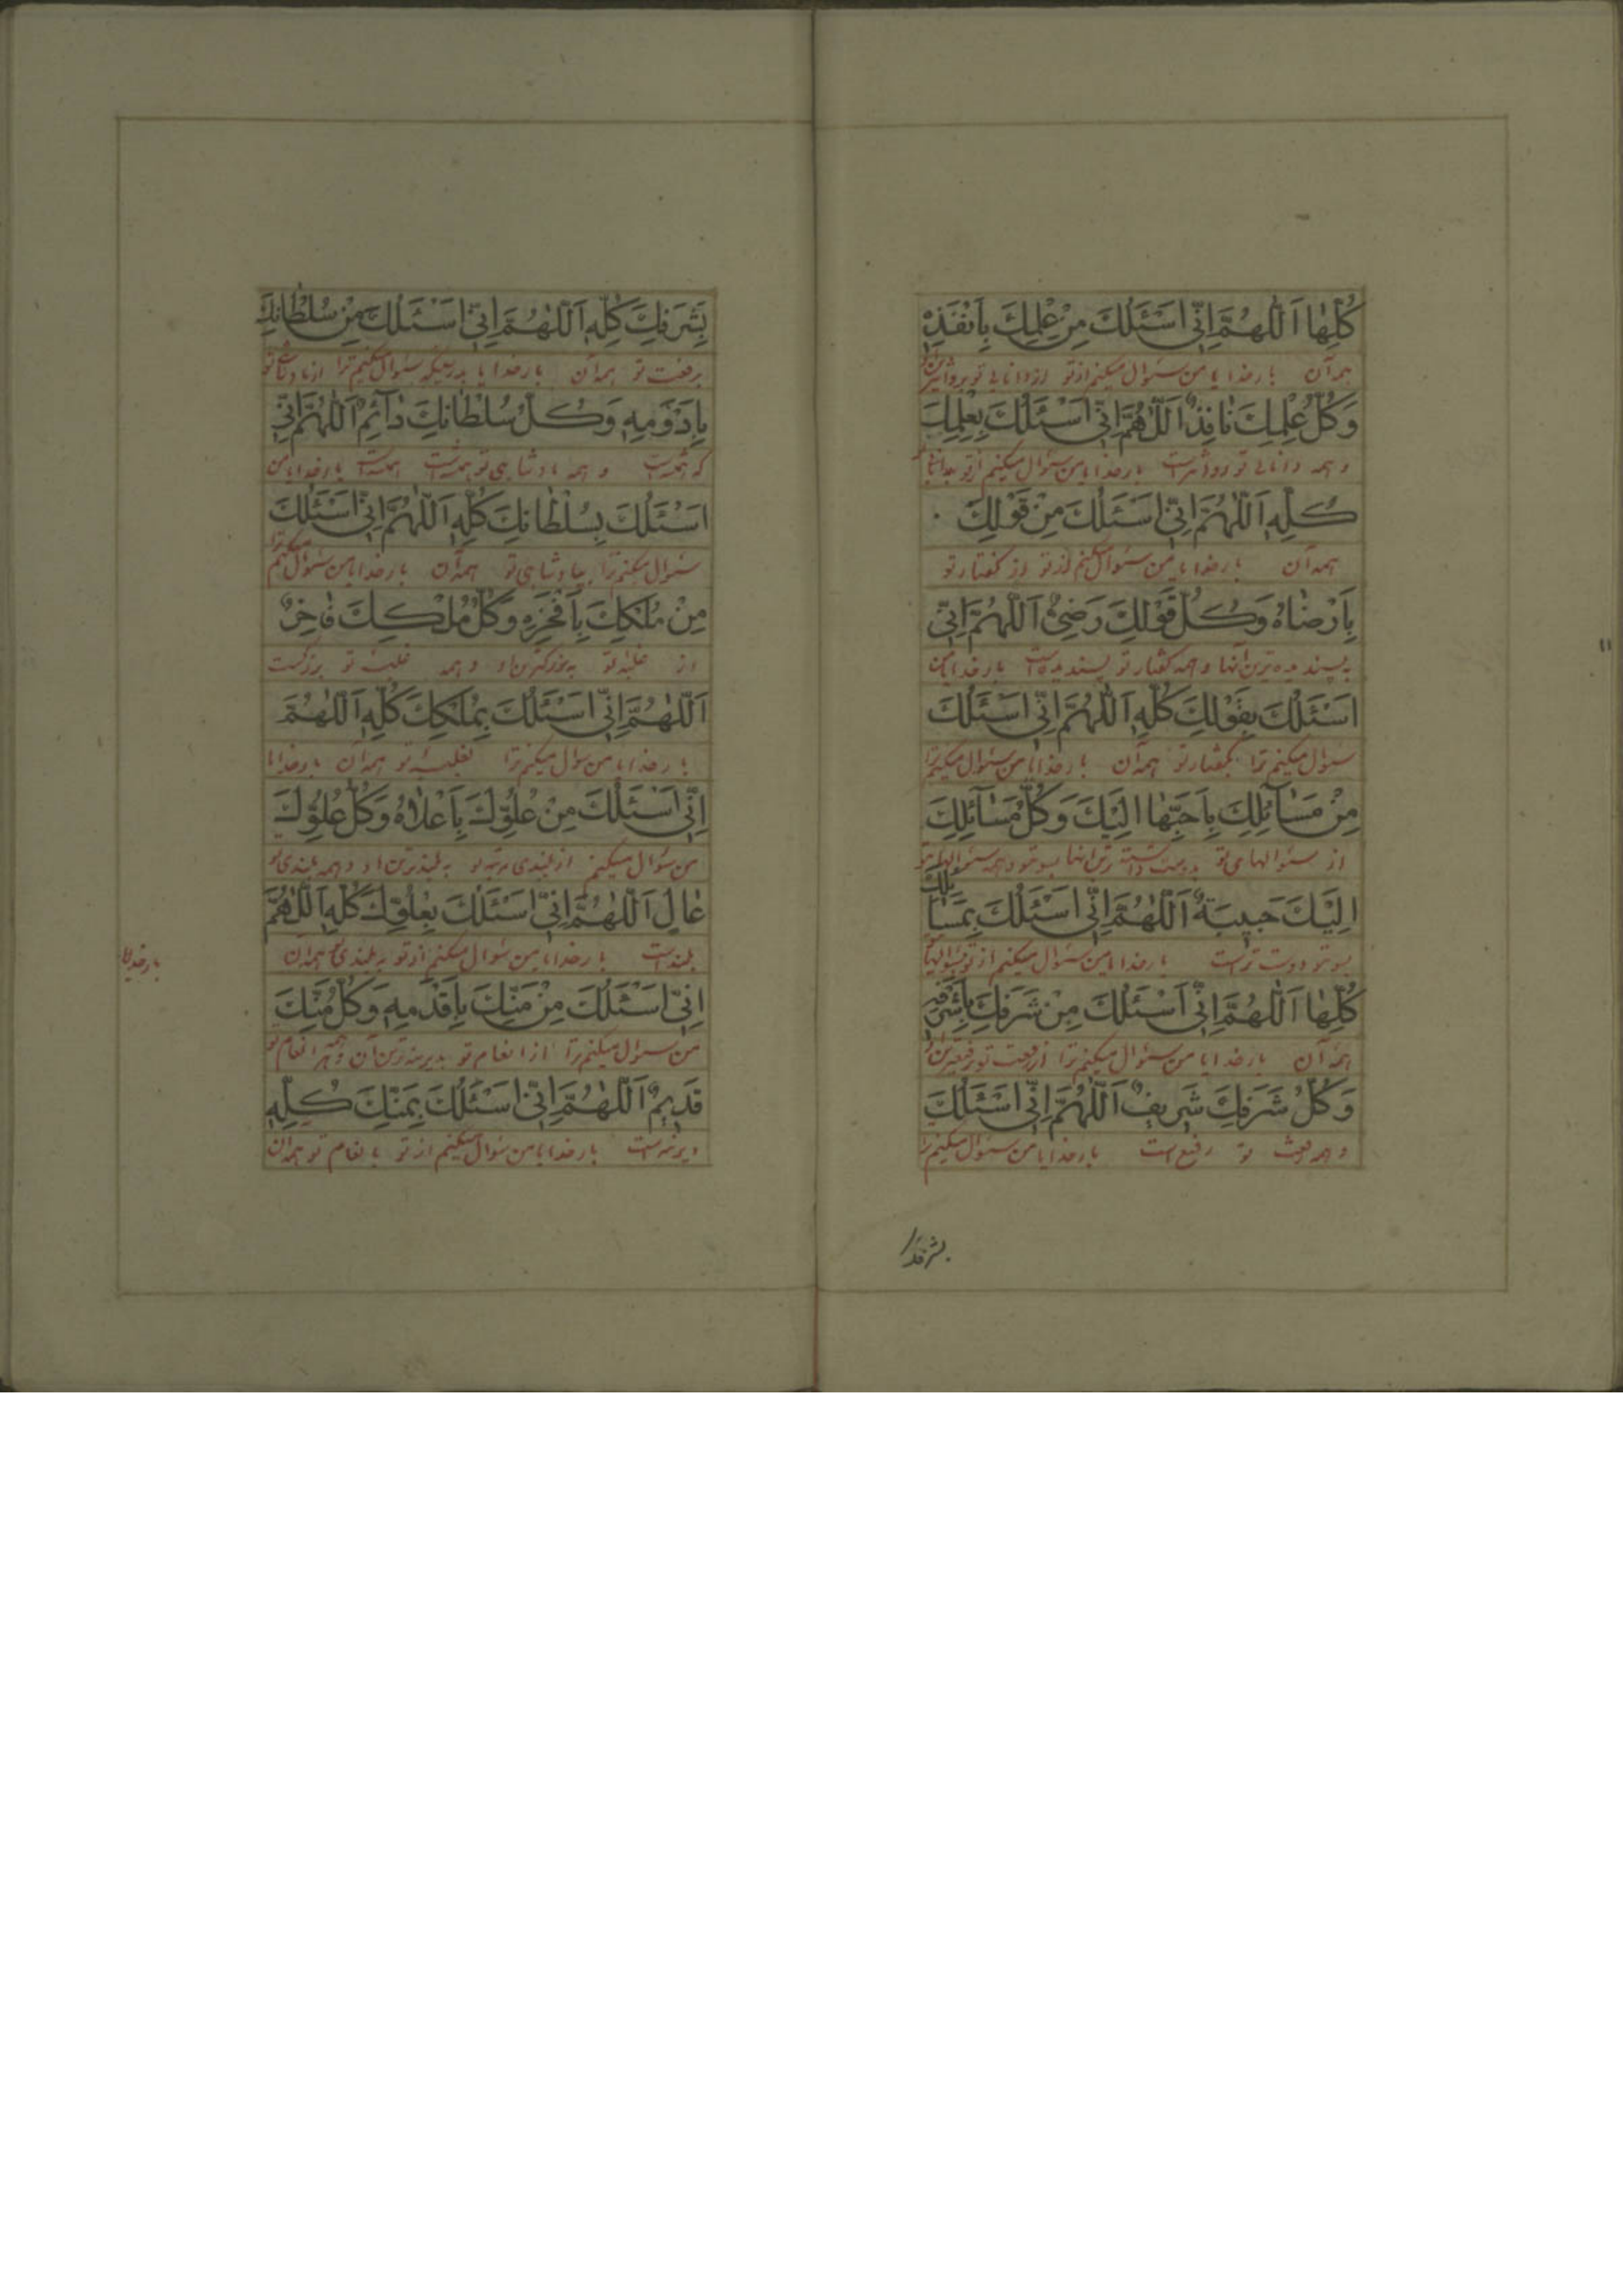 كُلِّهٰا اَللّٰهُمَّ اِنّٖى اَسْئَلُكَ مِنْ عِلْمِكَ بِاَنْفَذِهٖ
همه آن بارخدایا من سئوال میکنم از تو از دانایی تو
وَكُلُّ عِلْمِكَ نٰافِذٌ اَللّٰهُمَّ اِنّٖى اَسْئَلُكَ بِعِلْمِكَ
و همه دانایی تو بارخدایا من سئوال میکنم از تو
كُلِّهٖ اَللّٰهُمَّ اِنّٖى اَسْئَلُكَ مِنْ قَوْلِكَ
همه آن بارخدایا من سئوال میکنم از تو از کفتار تو
بِاَرْضٰاهُ وَكُلُّ قَوْلِكَ رَضِىٌّ اَللّٰهُمَّ اِنّٖى
به پسندیده ترین آنها و همه کفتار تو پسندیده است بارخدایا من
اَسْئَلُكَ بِقَوْلِكَ كُلِّهٖ اَللّٰهُمَّ اِنّٖى اَسْئَلُكَ
سئوال میکنم ترا بکفتار تو همه آن بارخدایا من سئوال میکنم ترا
مِنْ مَسٰآئِلِكَ بِاَحَبِّهٰا اِلَيْكَ وَكُلُّ مَسٰآئِلِكَ
از سئوالهای تو بدوست داشته ترین آنها بسوی تو و همه سئوالهای تو
اِلَيْكَ حَبيبَةٌ اَللّٰهُمَّ اِنّٖى اَسْئَلُكَ بِمَسٰآئِلِكَ
بسوی تو دوست تر است بارخدایا من سئوال میکنم از تو بسئوالهای
كُلِّهٰا اَللّٰهُمَّ اِنّٖى اَسْئَلُكَ مِنْ شَرَفِكَ بِاَشْرَفِهٖ
همه آن بارخدایا من سئوال میکنم ترا از رفعت تو
وَكُلُّ شَرَفِكَ شَريفٌ اَللّٰهُمَّ اِنّٖى اَسْئَلُكَ
و همه رفعت تو رفیع است بارخدایا من سئوال میکنم ترا
بشرفک
بِشَرَفِكَ كُلِّهٖ اَللّٰهُمَّ اِنّٖى اَسْئَلُكَ مِنْ سُلْطٰانِكَ
برفعت تو همه آن بارخدایا بدرستیکه سئوال میکنم ترا از پادشاهی تو
بِاَدْوَمِهٖ وَكُلُّ سُلْطٰانِكَ دٰآئِمٌ اَللّٰهُمَّ اِنّٖى
و همه پادشاهی تو همیشه است بارخدایا من
اَسْئَلُكَ بِسُلْطٰانِكَ كُلِّهٖ اَللّٰهُمَّ اِنّٖى اَسْئَلُكَ
سئوال میکنم ترا بپادشاهی تو همه آن بارخدایا من سئوال میکنم ترا
مِنْ مُلْكِكَ بِاَفْخَرِهٖ وَكُلُّ مُلْكِكَ فٰاخِرٌ
از غلبه تو به بزرکترین او و همه غلبه تو بزرکست
اَللّٰهُمَّ اِنّٖى اَسْئَلُكَ بِمُلْكِكَ كُلِّهٖ اَللّٰهُمَّ
بارخدایا من سئوال میکنم ترا بغلبه تو همه آن بارخدایا
اِنّٖى اَسْئَلُكَ مِنْ عُلُوِّكَ بِاَعْلٰاهُ وَكُلُّ عُلُوِّكَ
من سئوال میکنم از بلندی مرتبه تو به بلندترین او و همه بلندی تو
عٰالٍ اَللّٰهُمَّ اِنّٖى اَسْئَلُكَ بِعُلُوِّكَ كُلِّهٖ اَللّٰهُمَّ
بلند است بارخدایا من سئوال میکنم از تو به بلندی تو همه آن
بارخدایا
اِنّٖى اَسْئَلُكَ مِنْ مَنِّكَ بِاَقْدَمِهٖ وَكُلُّ مَنِّكَ
من سئوال میکنم ترا از انعام تو بدیرینه ترین آن و همه انعام تو
قَديمٌ اَللّٰهُمَّ اِنّٖى اَسْئَلُكَ بِمَنِّكَ كُلِّهٖ
دیرینه است بارخدایا من سئوال میکنم از تو بانعام تو همه آن